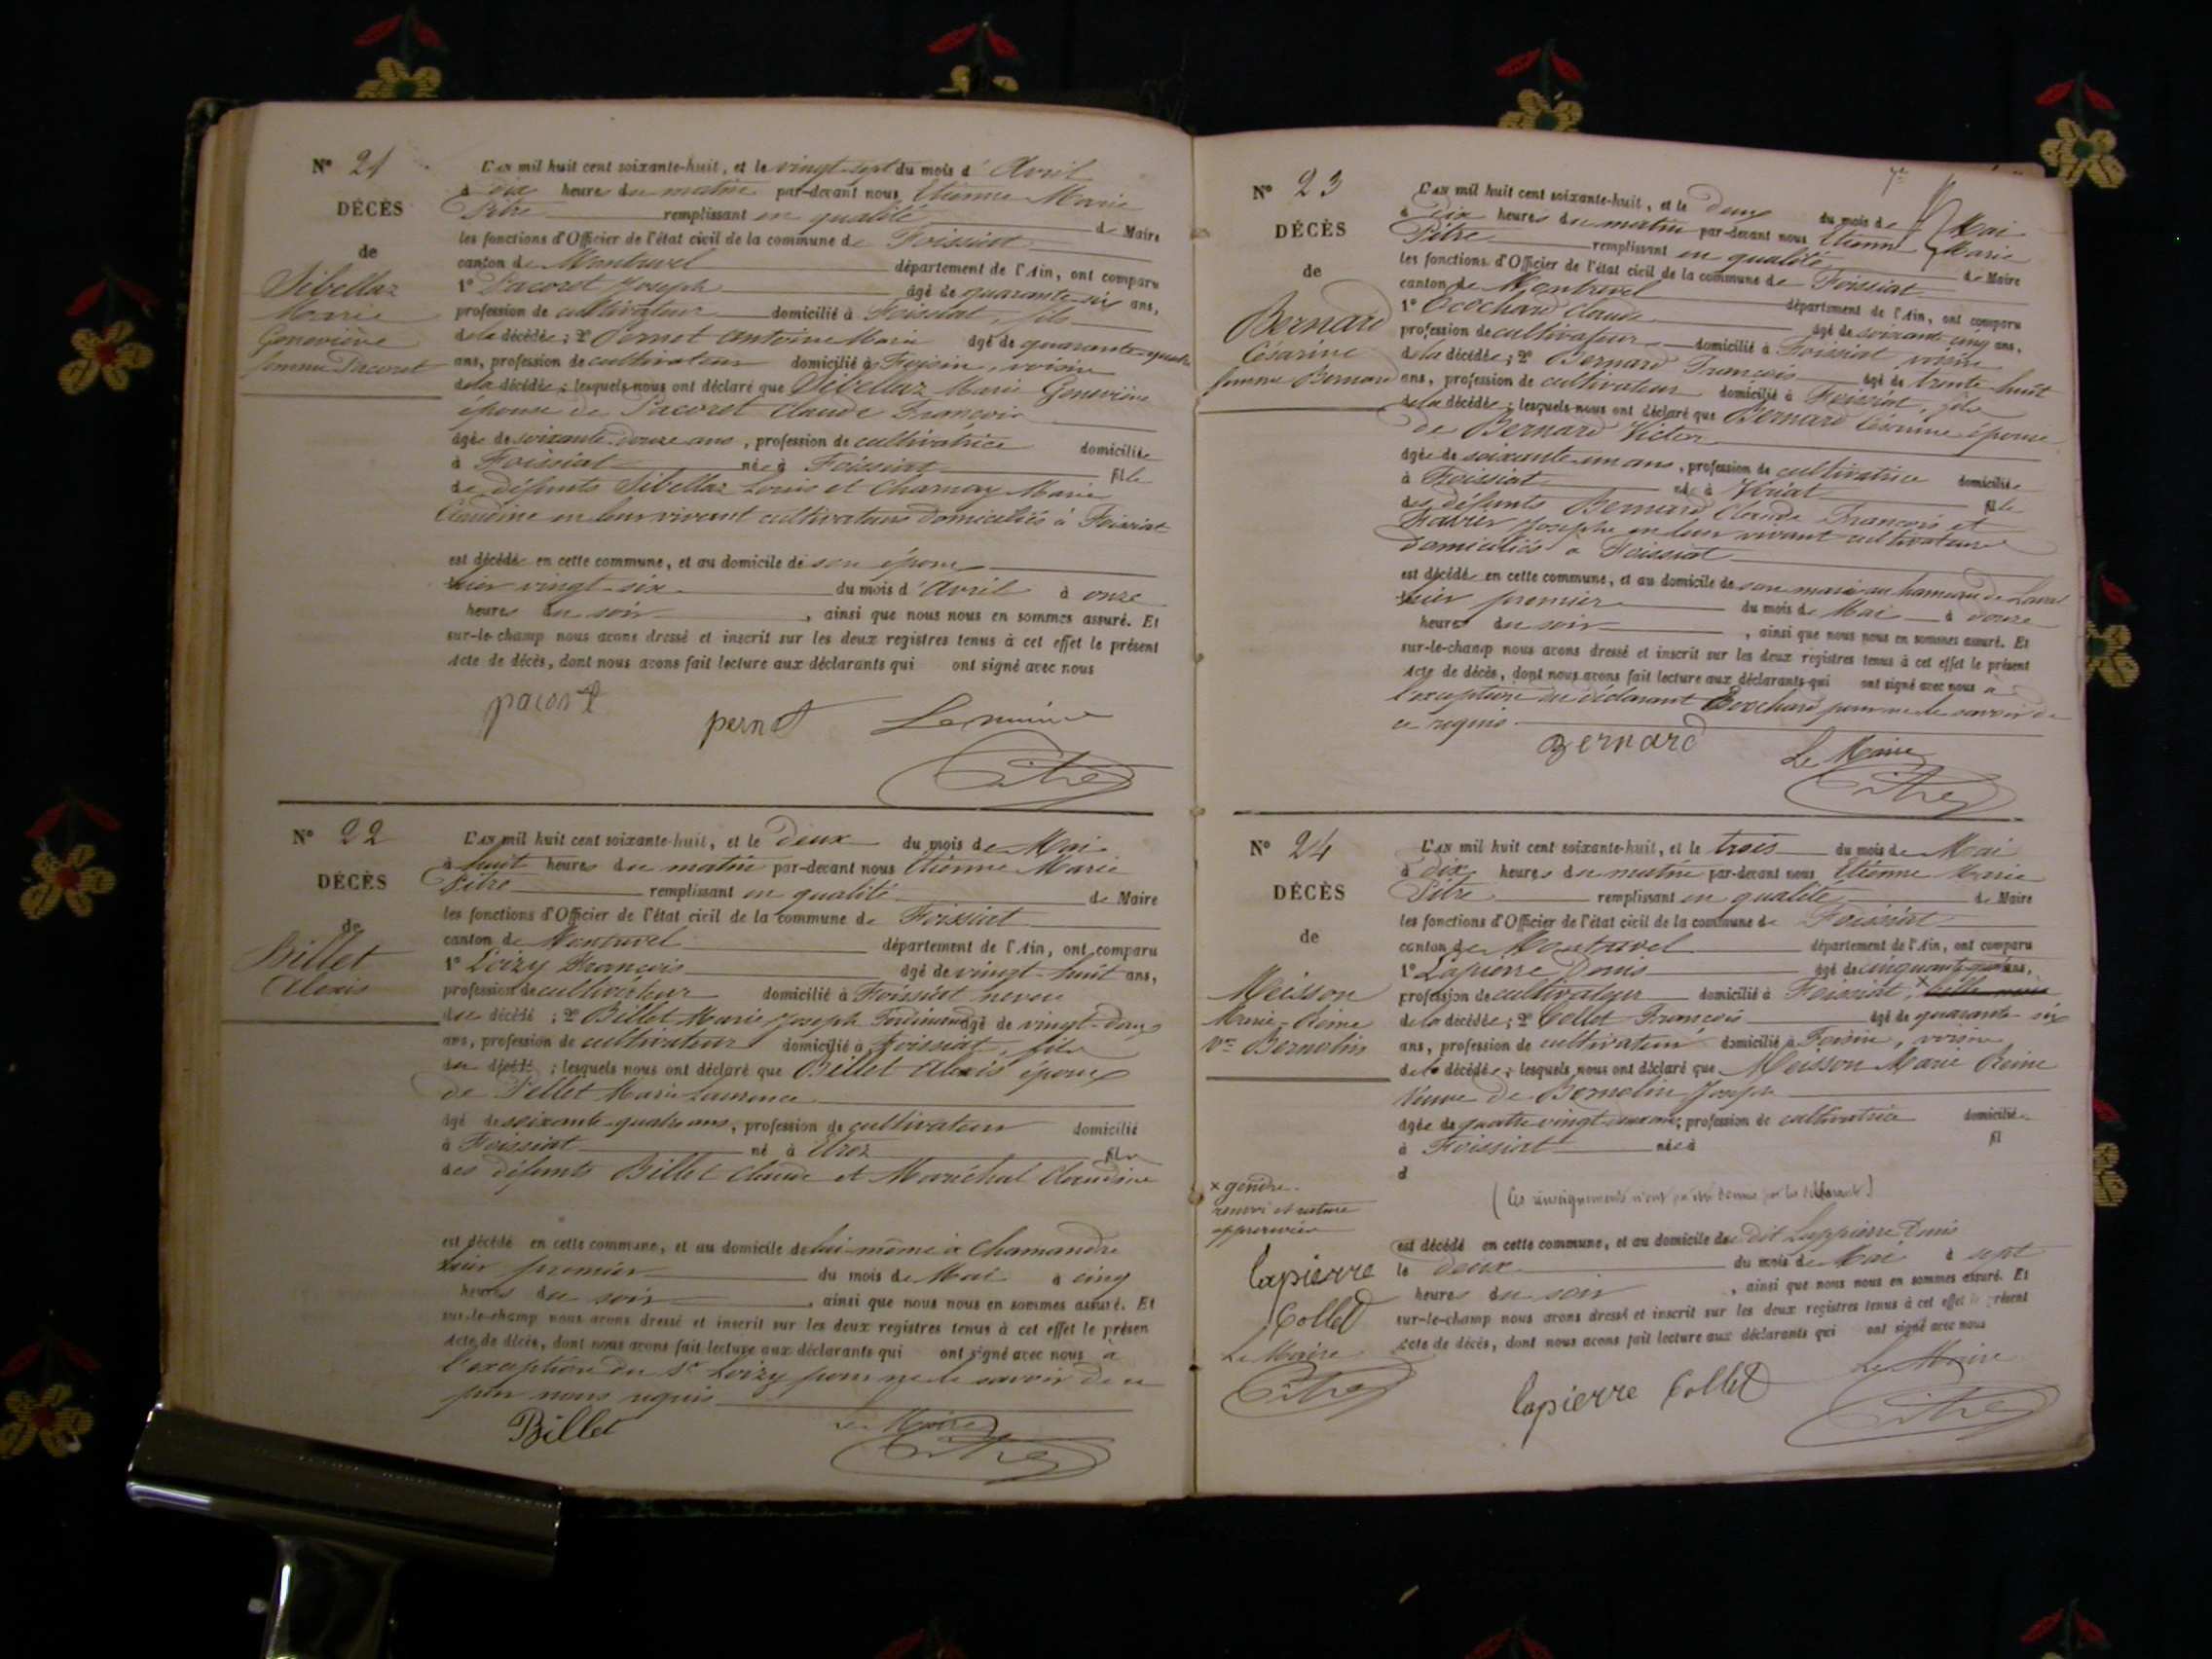 N° 21
DÉCÈS
de
Sibellas
Marie
Geneviève
femme Pacoret
L'AN mil huit cent soixante-huit, et le vingt-sept du mois d'Avril
à dix heures du matin par-devant nous Etienne Marie
Pitre remplissant en qualité de Maire
les fonctions d'Officier de l'état civil de la commune de Foissiat
canton de Montrevel département de l'Ain, ont comparu
1° Pacoret Joseph âgé de quarante-six ans,
profession de cultivateur domicilié à Foissiat, fils
de la décédée; 2° Pernet Antoine Marie âgé de quarante-quatre
ans, profession de cultivateur domicilié à Foissiat, voisin
de la décédée; lesquels nous ont déclaré que Sibellas Marie Geneviève
épouse de Pacoret Claude François
âgée de soixante-douze ans, profession de cultivatrice domiciliée
à Foissiat née à Foissiat fille
de défunts Sibellas Louis et Charnay Marie
Claudine en leur vivant cultivateurs domiciliés à Foissiat
est décédée en cette commune, et au domicile de son époux
hier vingt-six du mois d'Avril à onze
heures du soir, ainsi que nous nous en sommes assuré. Et
sur-le-champ nous avons dressé et inscrit sur les deux registres tenus à cet effet le présent
Acte de décès, dont nous avons fait lecture aux déclarants qui ont signé avec nous
pacoret pernet Le maire
Pitre
N° 22
DÉCÈS
de
Billet
Alexis
L'AN mil huit cent soixante-huit, et le deux du mois de Mai
à huit heures du matin par-devant nous Etienne Marie
Pitre remplissant en qualité de Maire
les fonctions d'Officier de l'état civil de la commune de Foissiat
canton de Montrevel département de l'Ain, ont comparu
1° Loizy François âgé de vingt-huit ans,
profession de cultivateur domicilié à Foissiat neveu
du décédé; 2° Billet Marie Joseph Ferdinand âgé de vingt-deux
ans, profession de cultivateur domicilié à Foissiat, fils
du décédé; lesquels nous ont déclaré que Billet Alexis époux
de Pellet Marie Laurence
âgé de soixante-quatre ans, profession de cultivateur domicilié
à Foissiat né à Etrez fils
des défunts Billet Claude et Maréchal Claudine
est décédé en cette commune, et au domicile de lui-même à Chamandre
hier premier du mois de Mai à cinq
heures du soir, ainsi que nous nous en sommes assuré. Et
sur-le-champ nous avons dressé et inscrit sur les deux registres tenus à cet effet le présen
Acte de décès, dont nous avons fait lecture aux déclarants qui ont signé avec nous à
l'exception du Sr Loizy pour ne le savoir de ce
par nous requis
Billet Le Maire
Pitre
N° 23
DÉCÈS
de
Bernard
Césarine
femme Bernard
L'AN mil huit cent soixante-huit, et le deux du mois de Mai
à dix heures du matin par-devant nous Etienne Marie
Pitre remplissant en qualité de Maire
les fonctions d'Officier de l'état civil de la commune de Foissiat
canton de Montrevel département de l'Ain, ont comparu
1° Ecochard Claude âgé de soixante-cinq ans,
profession de cultivateur domicilié à Foissiat voisin
de la décédée; 2° Bernard François âgé de trente-huit
ans, profession de cultivateur domicilié à Foissiat, fils
de la décédée; lesquels nous ont déclaré que Bernard Césarine épouse
de Bernard Victor
âgée de soixante-un ans, profession de cultivatrice domiciliée
à Foissiat née à Viriat fille
des défunts Bernard Claude François et
Josephe en leur vivant cultivateurs
domiciliés à Foissiat
est décédée en cette commune, et au domicile de son mari au hameau de Laval
hier premier du mois de Mai à douze
heures du soir, ainsi que nous nous en sommes assuré. Et
sur-le-champ nous avons dressé et inscrit sur les deux registres tenus à cet effet le présent
Acte de décès, dont nous avons fait lecture aux déclarants qui ont signé avec nous à
l'exception du déclarant Ecochard pour ne le savoir de
ce requis
Bernard Le Maire
Pitre
N° 24
DÉCÈS
de
Meisson
Marie-Reine
Ve Bernolin
L'AN mil huit cent soixante-huit, et le trois du mois de Mai
à dix heures du matin par-devant nous Etienne Marie
Pitre remplissant en qualité de Maire
les fonctions d'Officier de l'état civil de la commune de Foissiat
canton de Montrevel département de l'Ain, ont comparu
1° Lapierre Denis âgé de cinquante ans,
profession de cultivateur domicilié à Foissiat, ×
de la décédée; 2° Collet François âgé de quarante-six
ans, profession de cultivateur domicilié à Foissiat, voisin
de la décédée; lesquels nous ont déclaré que Meisson Marie Reine
Veuve de Bernolin Joseph
âgée de quatre-vingt ans, profession de cultivatrice domiciliée
à Foissiat née à fil
d
(Ces renseignements n'ont pu être donnés par les déclarants)
× gendre
renvoi et rature
approuvée
lapierre
Collet
Le Maire
Pitre
est décédé en cette commune, et au domicile du dit Lappierre Denis
le deux du mois de Mai à sept
heures du soir, ainsi que nous nous en sommes assuré. Et
sur-le-champ nous avons dressé et inscrit sur les deux registres tenus à cet effet le présent
Acte de décès, dont nous avons fait lecture aux déclarants qui ont signé avec nous
lapierre Collet Le Maire
Pitre